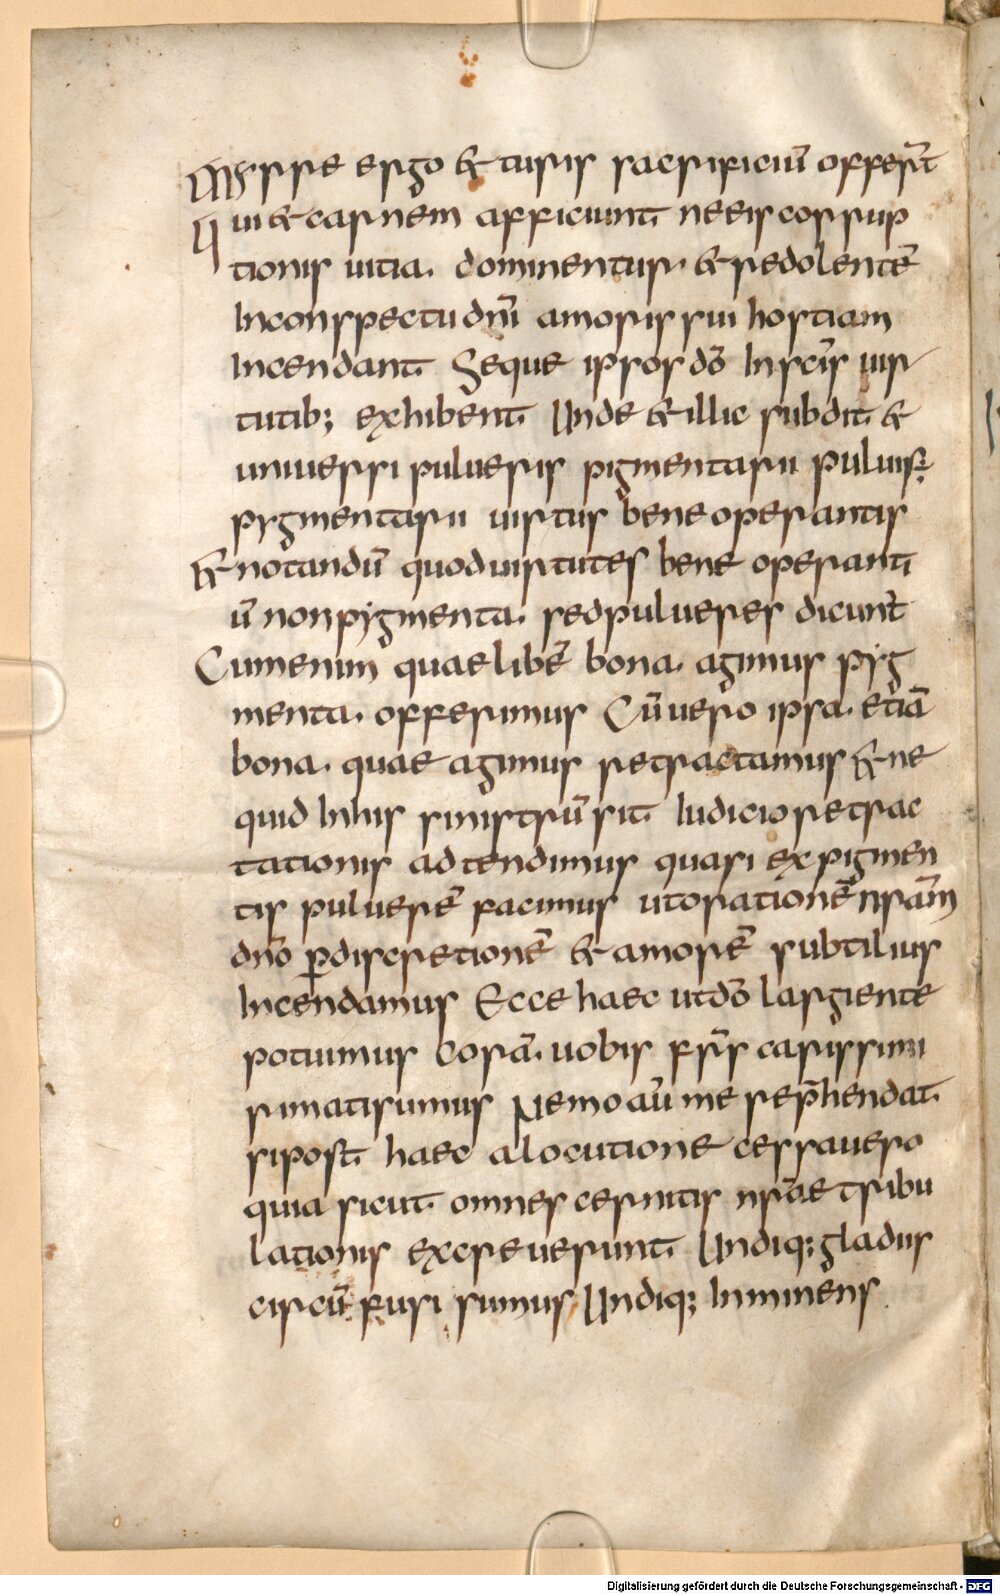 Myrre ergo & turis sacrificiū offerūt
qui & carnem afficiunt. ne eis corrup
tionis uitia. dominentur. & redolentē
In conspectu dnī amoris sui hostiam
Incendant. Seque ipsos dō In scīs uir
tutib; exhibent. Unde & illic subdit. &
uniuersi pulueris pigmentarii puluis;
pygmentarii uirtus bene operantis
& notandū quod uirtutes bene operant
ū non pygmenta. sed pulueres dicunt̄
Cum enim quaelibē bona. agimus pyg
menta. offerimus Cū uero ipsa. etiā
bona. quae agimus retractamus & ne
quid In his sinistrū sit. Iudicio retrac
tationis adtendimus quasi ex pigmen
tis puluerē facimus ut orationē nrām
dnō ꝑ discretionē & amorē subtilius
Incendamus Ecce haec ut dō largiente
potuimus corā. uobis frīs carissimi
rimati sumus Nemo aū me rep̄hendat.
si post. haec alocutione cessauero
quia sicut. omnes cernitis nrāe tribu
lationis excreuerunt. Undiq; gladiis
circū fusi sumus Undiq; Inminens